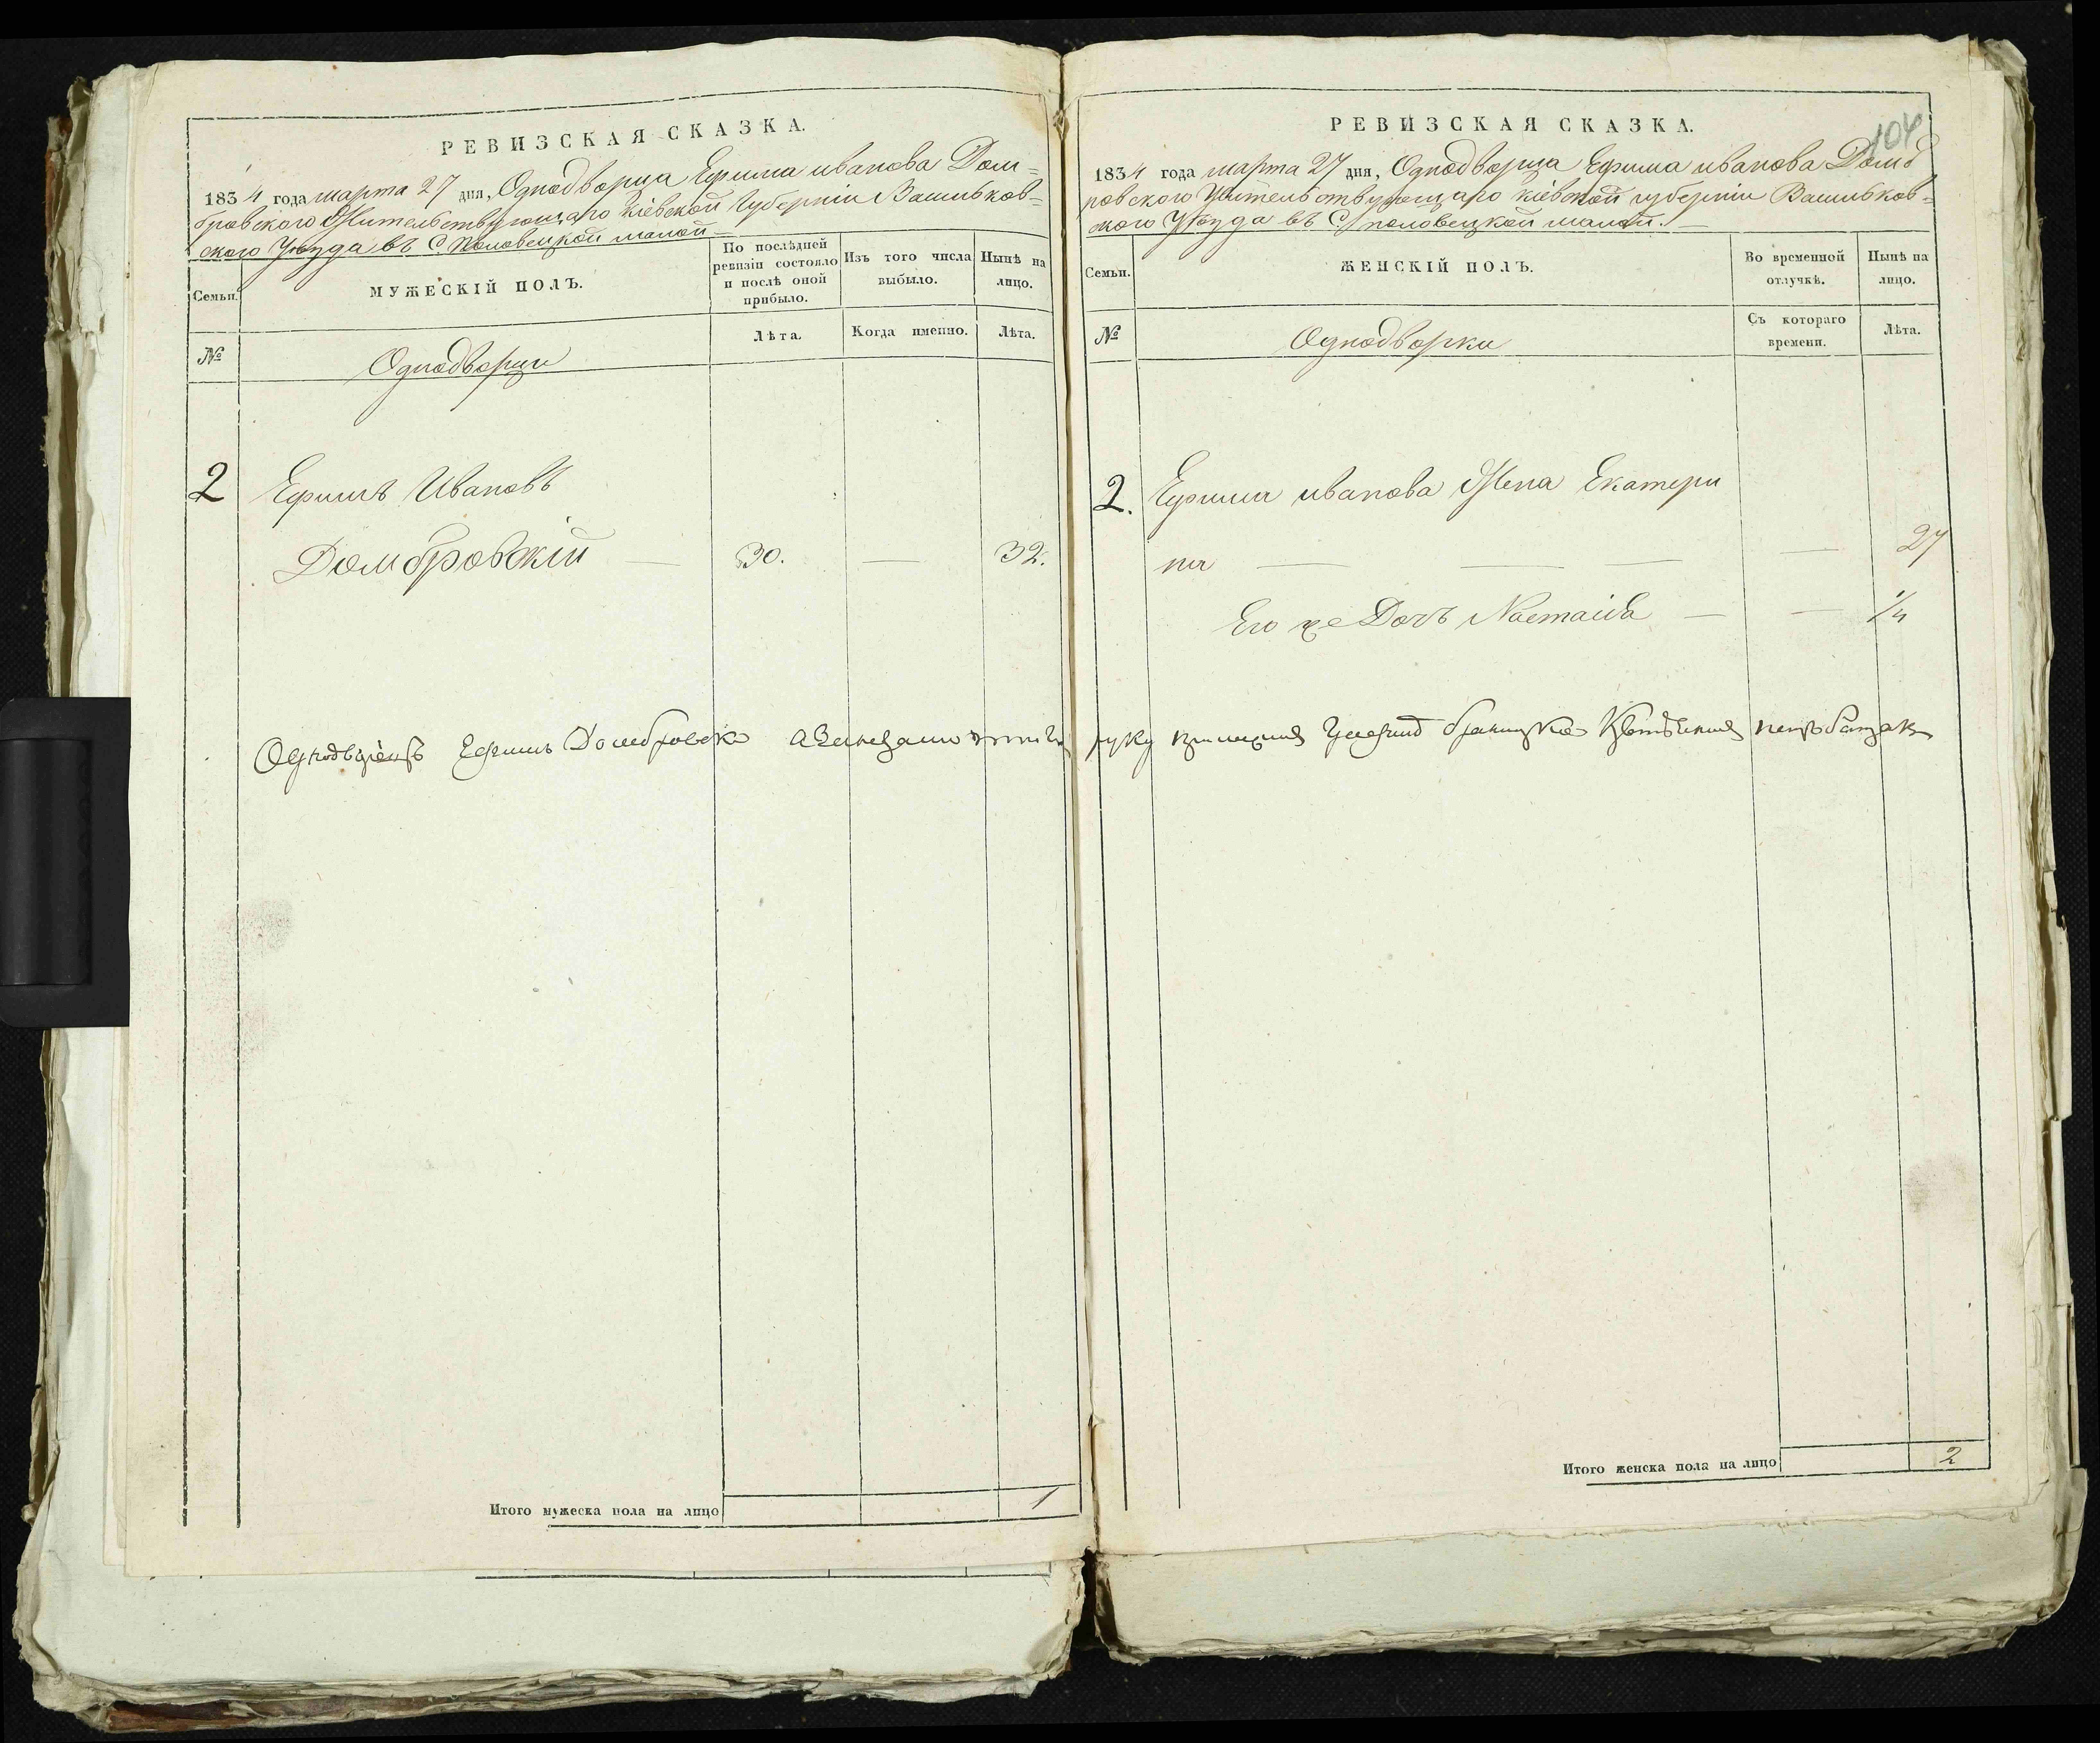 РЕВИЗСКАЯ СКАЗКА.
1834 года марта 27 дня, Однодворца Ефима иванова Дом=
бровского Жительствующаго кіевской Губерніи Васильков=
ского Уѣзда въ С. Половецкой малой
Семьи.
МУЖЕСКІЙ ПОЛЪ.
По послѣдней
ревизіи состояло
и послѣ оной
прибыло.
Изъ того числа
выбыло.
Нынѣ на
лицо.
№
Однодворци
Лѣта.
Когда именно.
Лѣта.
2 Ефимъ Ивановъ
Домбровскій — 30. — 32.
Однодворецъ Ефимъ Домбровско
Итого мужеска пола на лицо 1
104
РЕВИЗСКАЯ СКАЗКА.
1834 года марта 27 дня, Однодворца Ефима иванова Домб
ровского Жительствующаго кіевской губерніи Васильков=
ского Уѣзда въ С. половецкой малой. —
Семьи.
ЖЕНСКІЙ ПОЛЪ.
Во временной
отлучкѣ.
Нынѣ на
лицо.
№
Однодворки
Съ котораго
времени.
Лѣта.
2. Ефима иванова Жена Екатери
на — — — — 27
Его же Дочь Настасія — — 1/4
руку
Итого женска пола на лицо 2